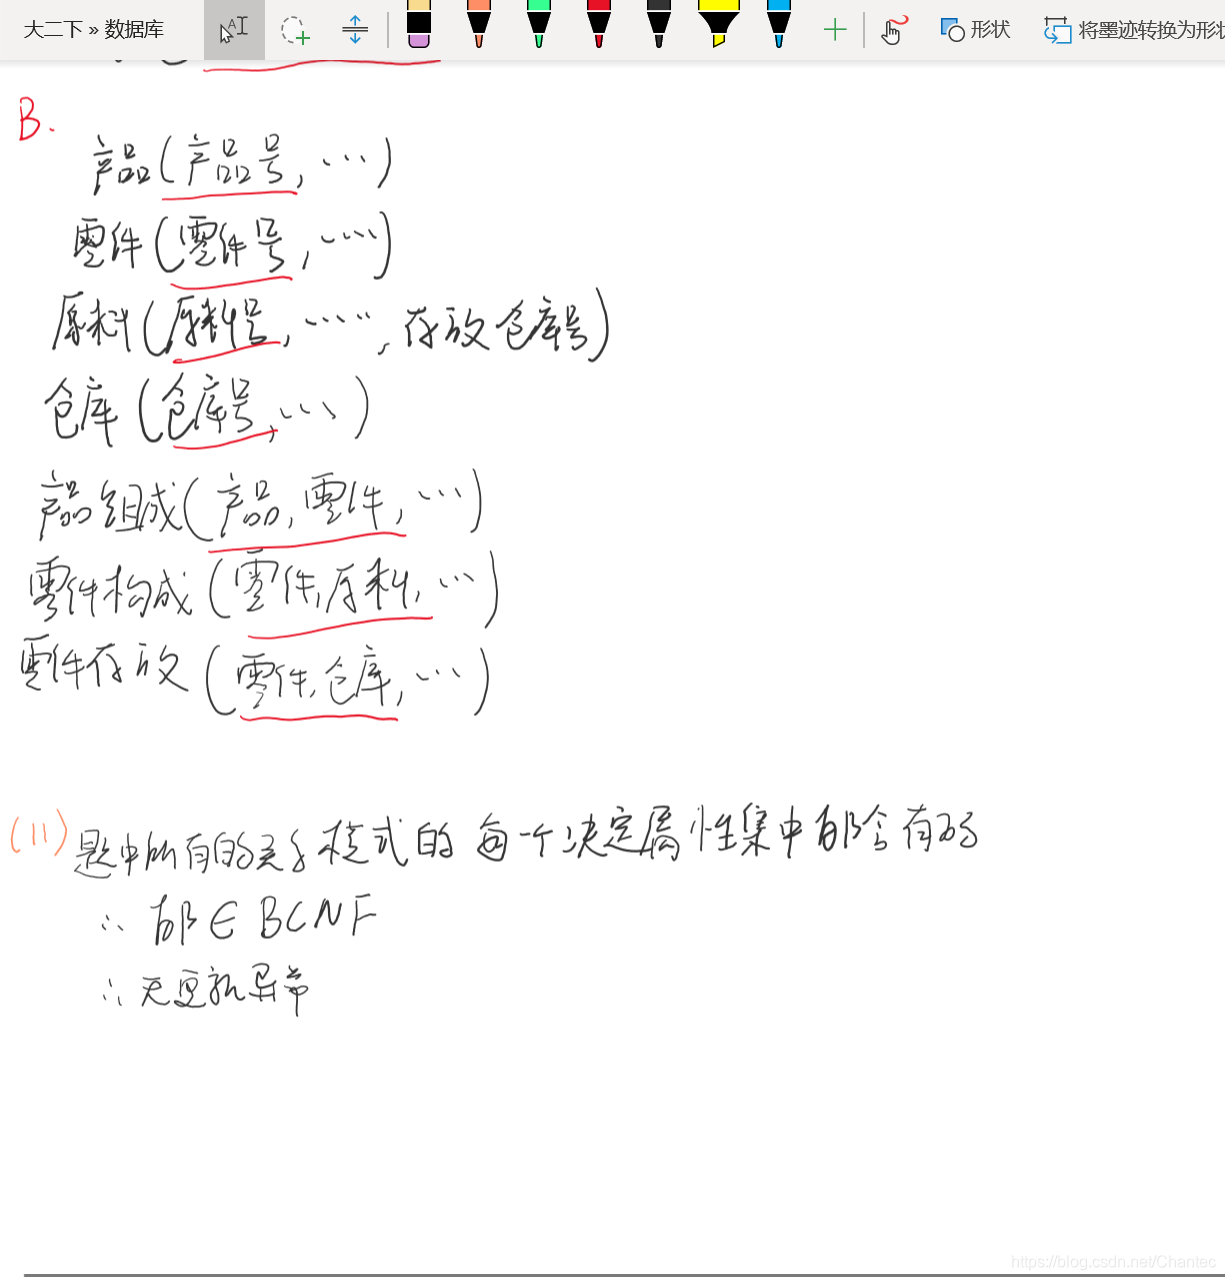 大二下 » 数据库 形状 将墨迹转换为形状
B.
产品(产品号, ...)
零件(零件号, ....)
原料(原料号, ....., 存放仓库号)
仓库(仓库号, ...)
产品组成(产品, 零件, ...)
零件构成(零件, 原料, ...)
零件存放(零件, 仓库, ...)
(11) 题中所有的关系模式的每一个决定属性集中都含有码
∴ 都∈BCNF
∴ 无更新异常
https://blog.csdn.net/Chantec